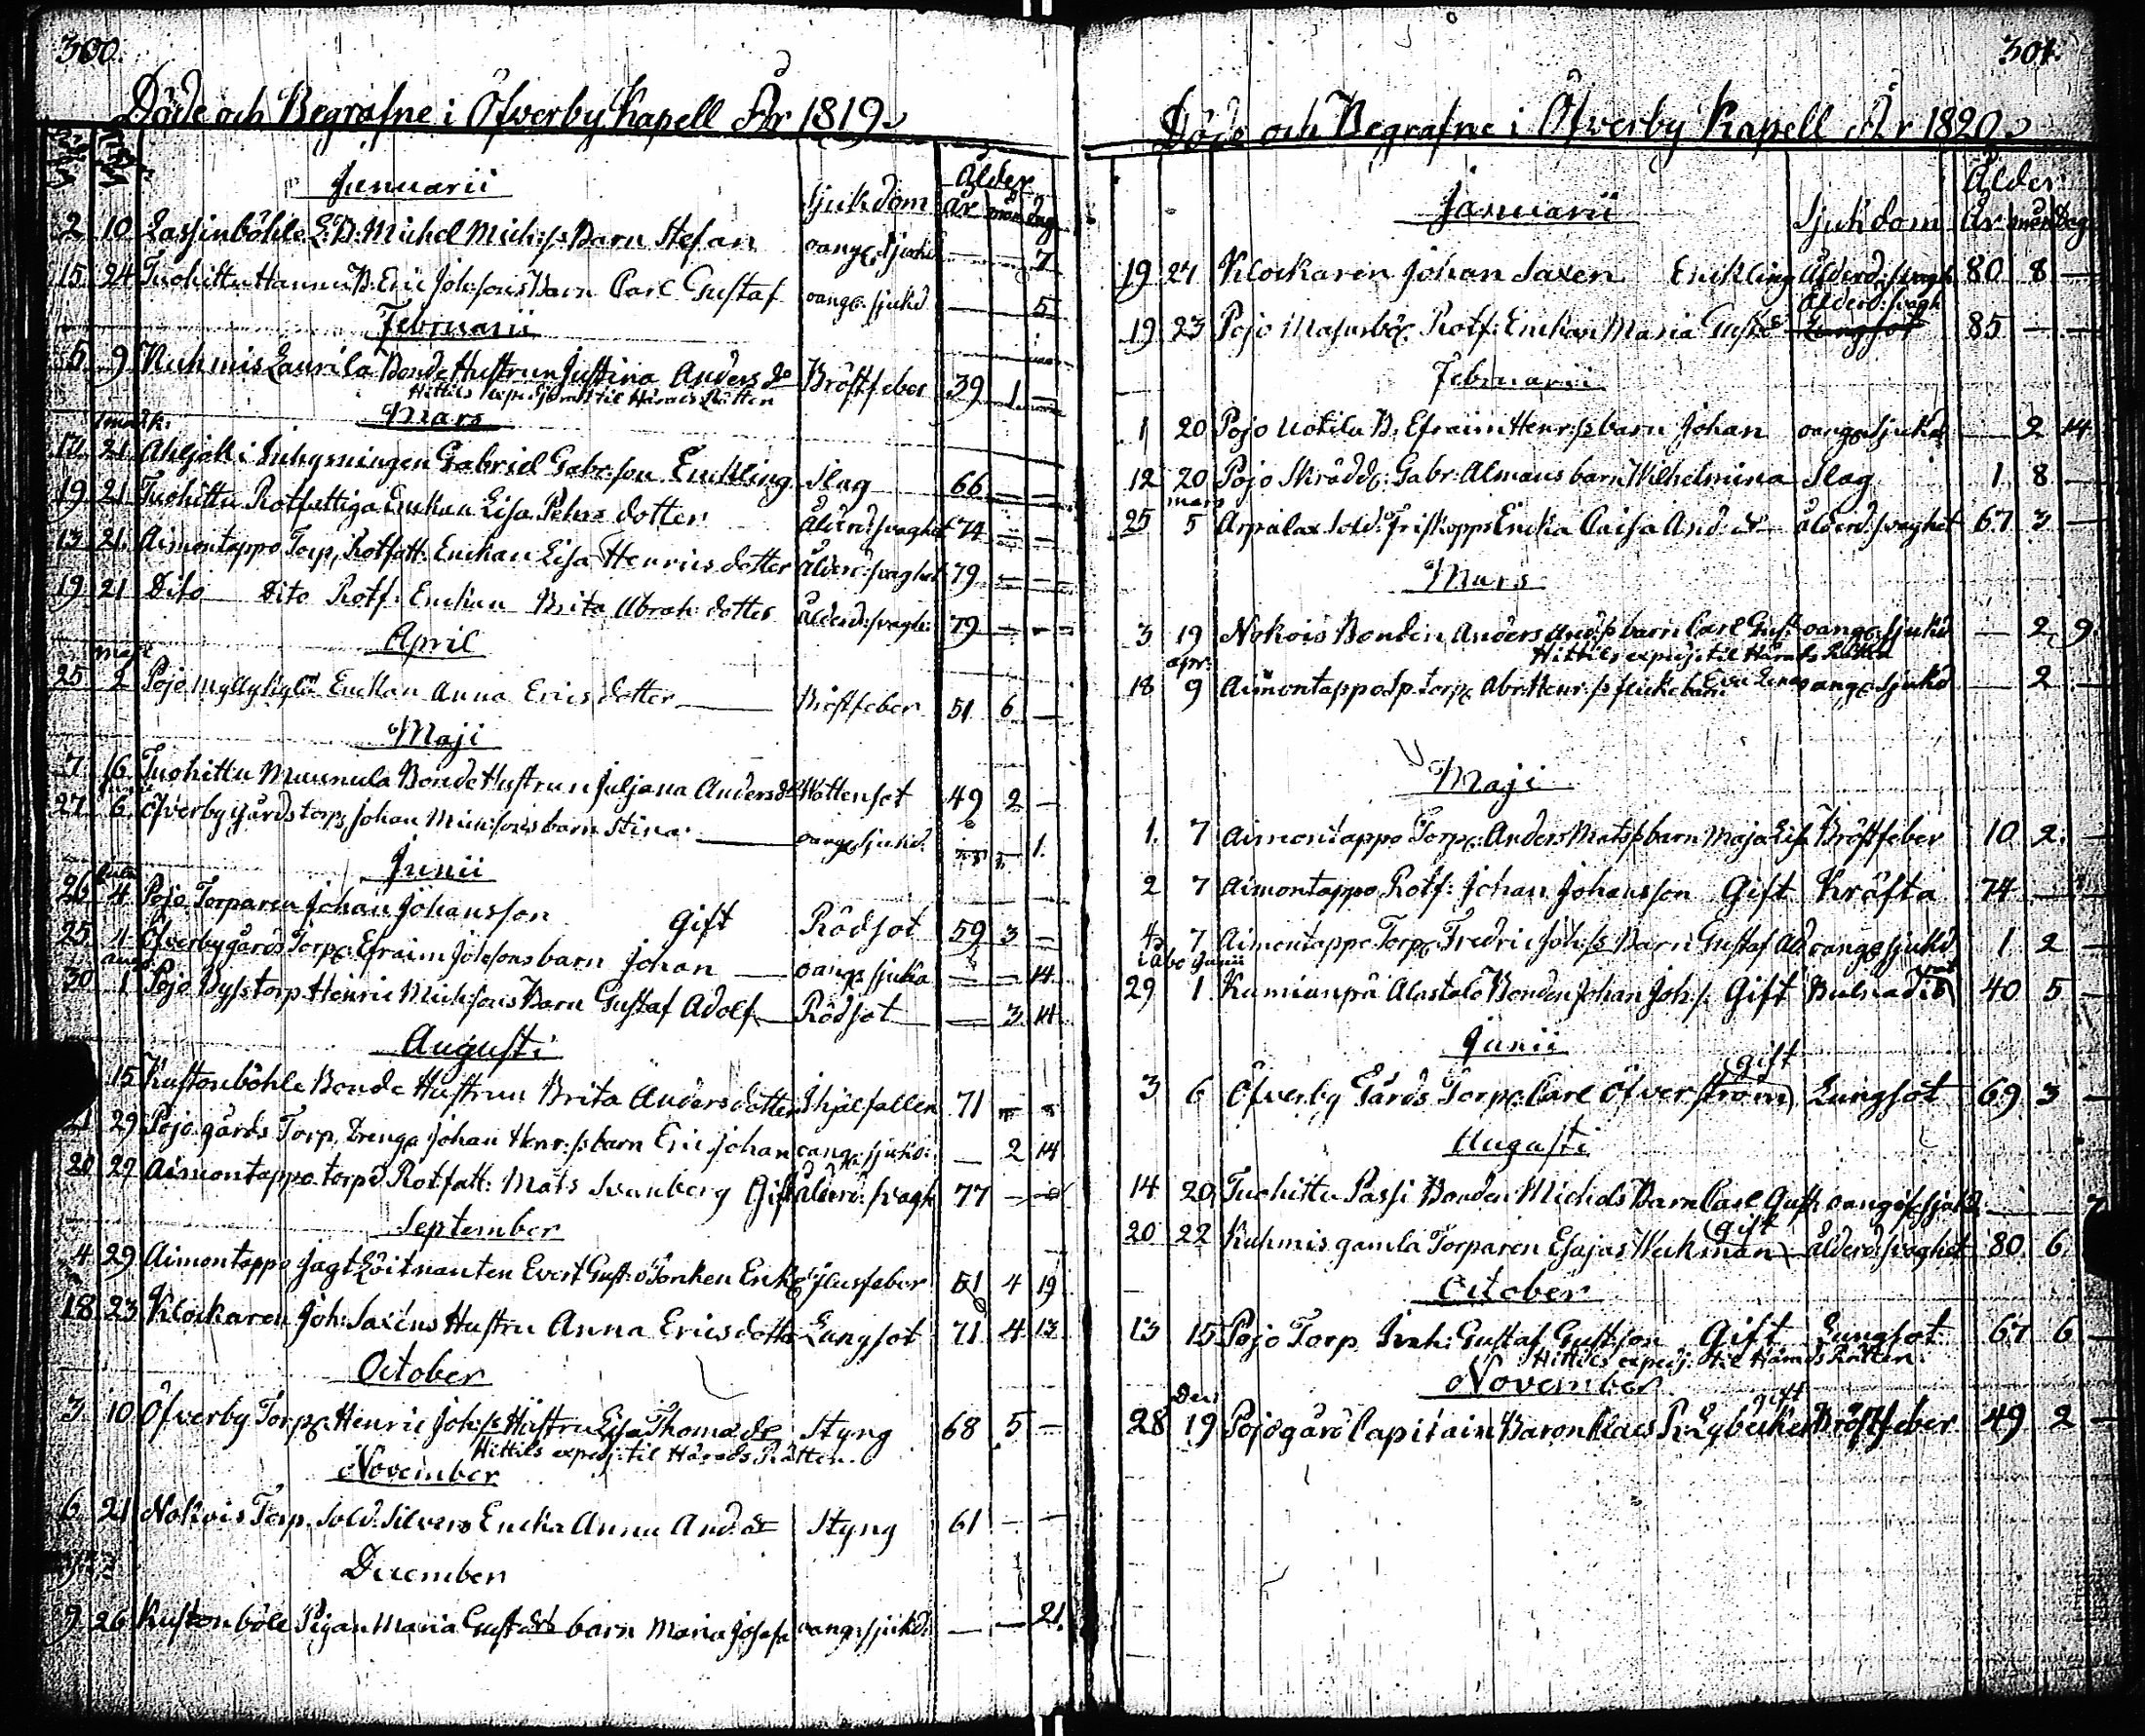 300.
Döde och Begrafne i Öfverby Kapell År 1819.
Januarii
Sjukdom
Ålder
År mån dag
2 10 Lassinböhle B: Michel Mich:s Barn Stefan oang. Sjuckd — — 7
15 24 Tuohittu Hannu B. Eric Joh:sons Barn Carl Gustaf oang. sjukd — — 5
Februarii
5 9 Kuhmis Laurila Bonde Hustrun Justina Anders dr Bröstfeber 39 1 —
Hittils expedierat til Härads Rätten
Mars
17 21 i Inhysningen Gabriel Gabr:son Enckling Slag 66 — —
19 21 Tuohittu Rotfattiga Enckan Lisa Pehrs dotter Ålderd: svaghet 74 — —
13 21. Aimontappo Torp, Rotfatt: Enckan Lisa Henrics dotter Ålderd: svaghet 79 — —
19 21 Dito Dito Rotf: Enckan Brita Abrah: dotter Ålderd: svagh: 79 — —
April
maji
25 2 Pojo Myllykylä Enckan Anna Erics dotter — Bröstfeber 51 6 —
Maji
7 16 Tuohittu Muunula Bonde Hustrun Juljana Anders dr Wattensot 49 2 —
27 6 Öfverby Gårds torp, Johan Mich:sons barn Stina — oang. Sjukd. — — 1.
Junii
26 4 Pojo Torparen Johan Johansson Gift Rödsot 59 3 —
25 4 Öfverby gårds Torp. Efraim Joh:sons barn Johan — oang. sjukd — — 14
aug:
30 1 Pojo Bys torp Henric Mich:sons Barn Gustaf Adolf — Rödsot — 3 14
Augusti
15 Kustonböhle Bonde Hustrun Brita Anders dotter Ihjälfallen 71 — —
21 29 Pojo gårds Torp, Drenge Johan Henr:s barn Eric Johan oang. sjukd: — 2 14
20 29 Aimontappo torp Rotfatt: Mats Svanberg Gift Ålderd: svagh 77 — —
September
4 29 Aimontappo Jagt Löitnanten Evert Gust: Enk 51 4 19
18 23 Klockaren Joh: Saxens Hustru Anna Erics dotter Lungsot 71 4 13
October
3 10 Öfverby Torp. Henric Joh:s Hustru Lisa Thomæ dr Styng 68 5 —
Hittils exped: til Härads Rätten
November
6 21 Nokois Torp. Sold. Silvers Encka Anna And. dr Styng 61 — —
December
9 26 Kustonböle Pigan Maria Gust: dr barn Maria Josefa oang. sjukd: — — 21.
301.
Döde och Begrafne i Öfverby Kapell År 1820.
Januarii
Sjukdom
Ålder
År mån dag
19 24 Klockaren Johan Saxen Enckling Ålderd: svagh 80 8 —
Ålderd: svagh
19 23 Pojo Rotf: Enckan Maria Gust: dr Lungsot 85 — —
Februarii
1 20 Pojo Uotila B. Efraim Henr:s barn Johan oang. Sjukd — 2 14.
12 20 Pojo Skrädd. Gabr: Almans barn Wilhelmina Slag 1 8 —
mars
25 5 Arpalax Sold: Friskopps Encka Caisa And: dr ålderd: svaghet 67 3 —
Mars
3 19 Nokois Bonden Anders And:s barn Carl Gust: oang. sjukd — 2 9
Hittils exped: til Härads Rätten
apr:
18 9 Aimontappo Torp. Abr: Henr:s flickebarn Eva Lena oang. sjukd — 2 —
Maji
1. 7 Aimontappo Torp. Anders Mats:s barn Maja Lisa Bröstfeber 10 2. —
2 7 Aimontappo Rotf: Johan Johansson Gift Kräfta 74 —
4 7 Aimontappo Torp. Fredric Joh:s Barn Gustaf Ad. oang. sjukd 1 2 —
i Åbo Junii
29 1. Kumianpä Alastalo Bonden Johan Joh:s. Gift 40 5 —
Junii
gift
3 6 Öfverby Gårds Torp. Carl Öfverström Lungsot 69 3 —
Augusti
14 20 Tuohittu Passi Bonden Michels Barn Carl Gust: oangif. sjukd — — 7
gift
20 22 Kuhmis gamla Torparen Esajas Weckman ålderd: svaghet 80 6.
October
13 15 Pojo Torp. Inh: Gustaf Gust:son Gift Lungsot 67 6 —
Hittils exped: til Härads Rätten.
November
Dec: gift
28 19 Pojo gård Capitain Baron Claes R. Lybecker Bröstfeber 49 2 —